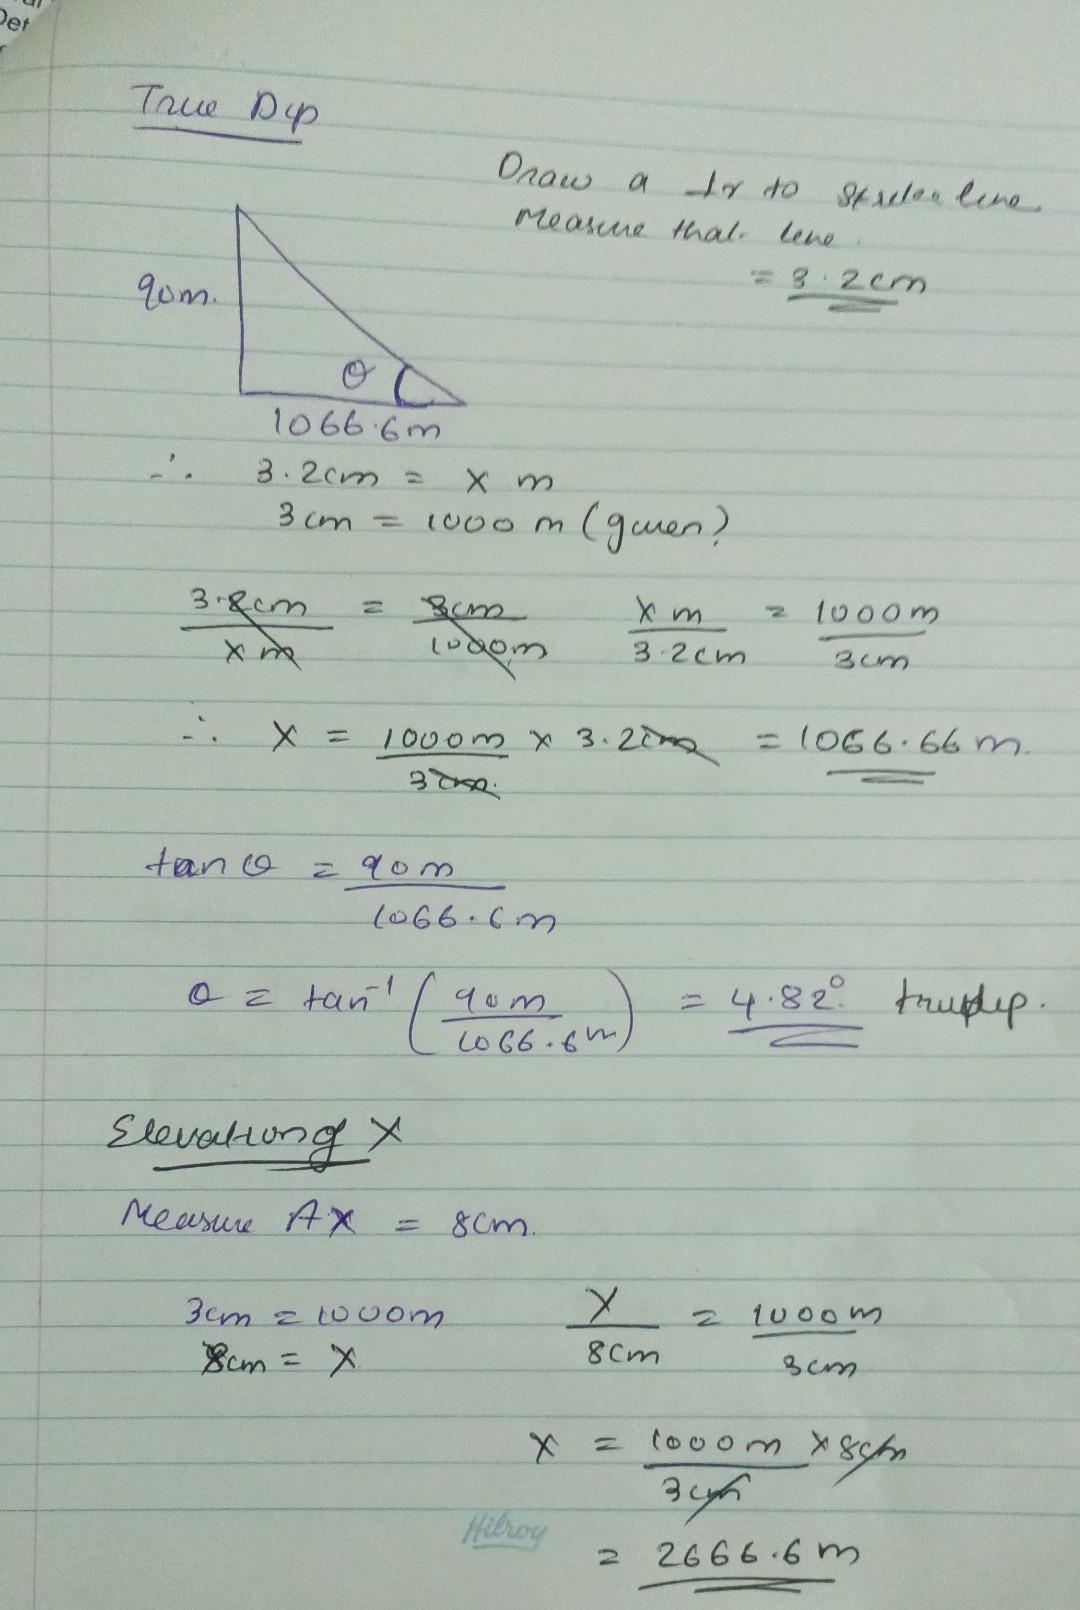 Det
True Dip
Draw a ⊥r to strike line
Measure that line.
= 3.2cm
90m.
θ
1066.6m
∴ 3.2cm = x m
3cm = 1000 m (given)
3.2cm / x m = 3cm / 1000m    x m / 3.2cm = 1000m / 3cm
∴ x = 1000m / 3cm. x 3.2cm = 1066.66 m.
tan θ = 90m / 1066.6m
θ = tan⁻¹ (90m / 1066.6m) = 4.82°. true dip.
Elevation of X
Measure AX = 8cm.
3cm = 1000m    X / 8cm = 1000m / 3cm
8cm = X
x = 1000m x 8cm / 3cm
= 2666.6m
Hilroy